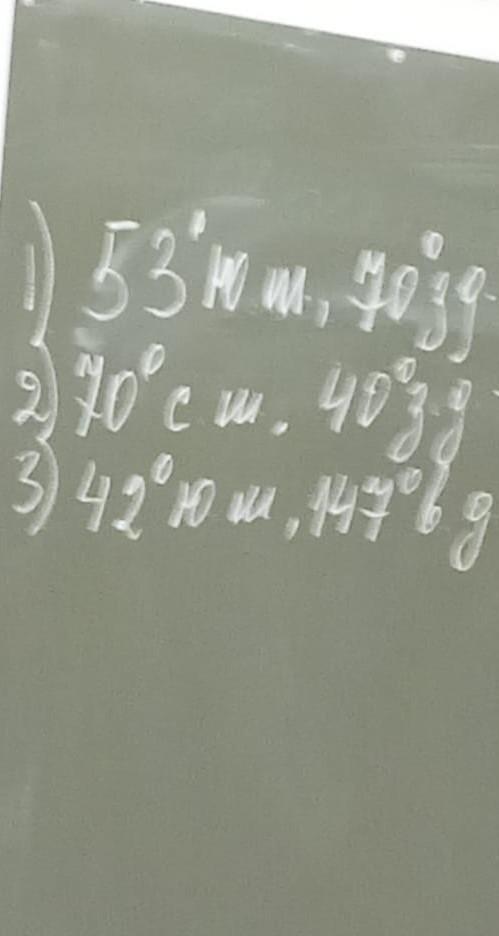 1) 53° ю ш, 70° з д
2) 70° с ш. 40° з д
3) 42° ю ш, 147° в д